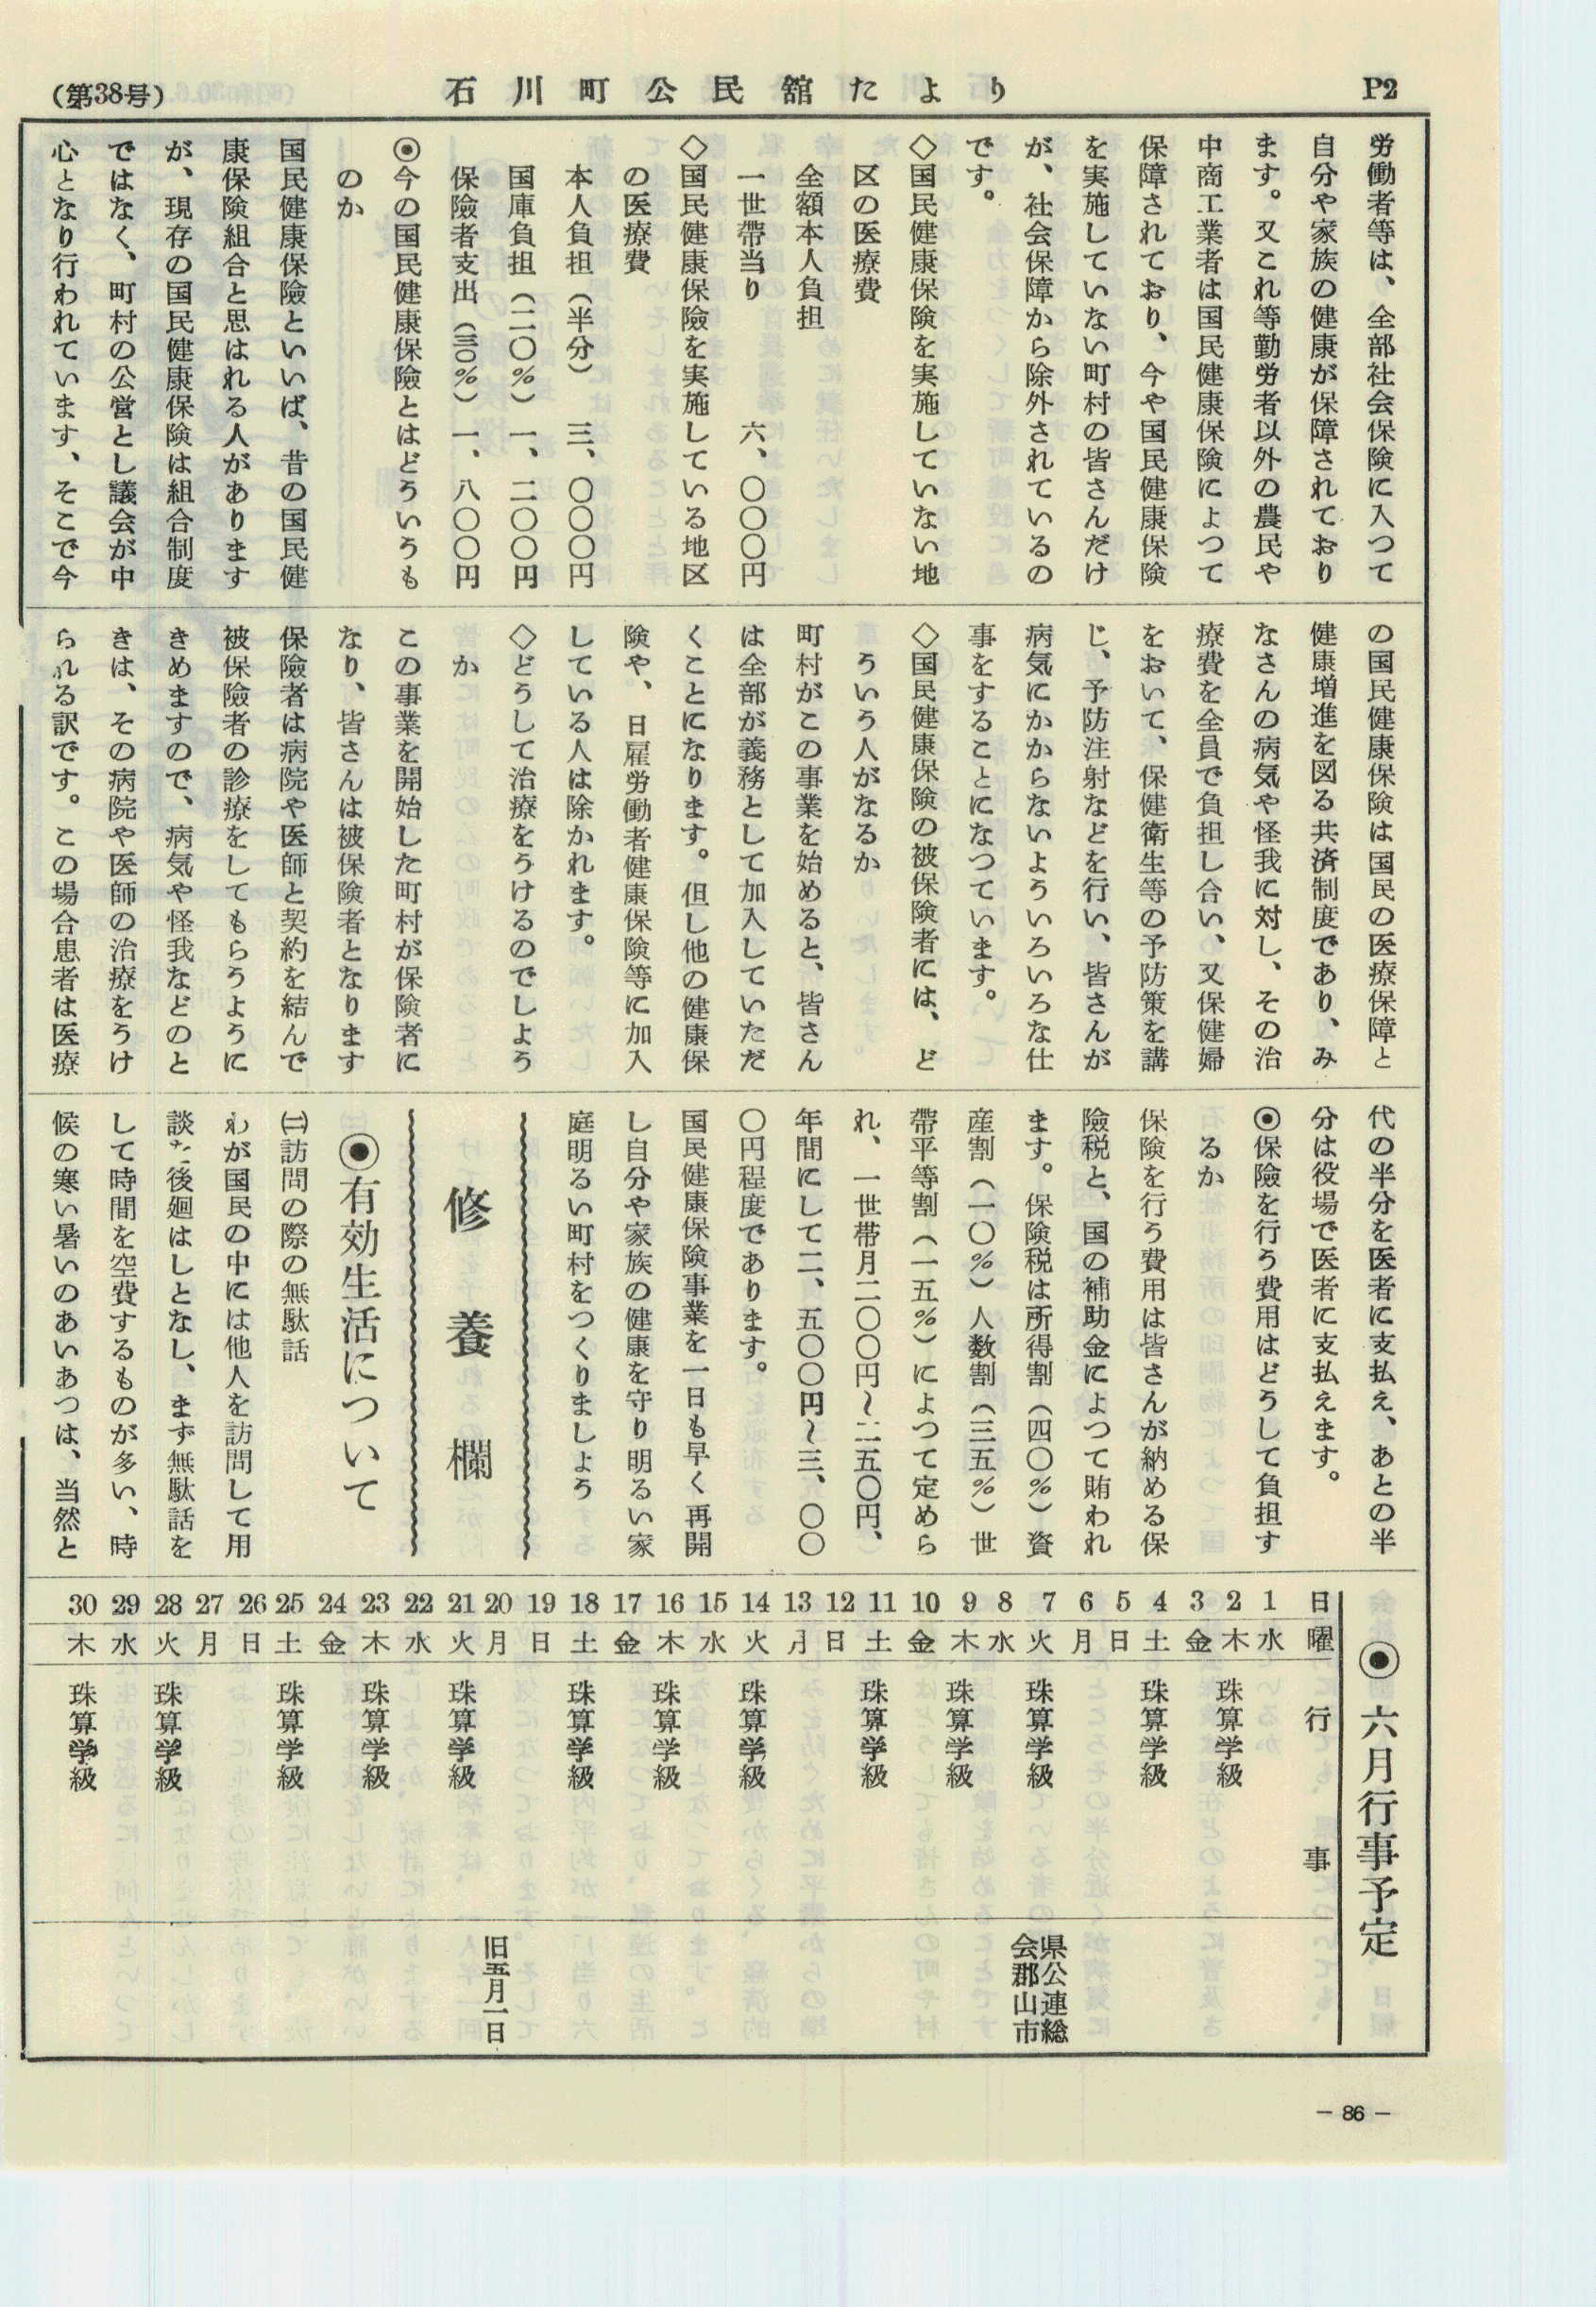 P2
石川町公民舘たより
(第38号)
労働者等は、全部社会保険に入つて
自分や家族の健康が保障されており
ます。又これ等勤労者以外の農民や
中商工業者は国民健康保険によつて
保障されており、今や国民健康保険
を実施していない町村の皆さんだけ
が、社会保障から除外されているの
です。
◇国民健康保険を実施していない地
区の医療費
全額本人負担
一世帯当り 六、〇〇〇円
◇国民健康保險を実施している地区
の医療費
本人負担(半分) 三、〇〇〇円
国庫負担(二〇%)一、二〇〇円
保險者支出(三〇%)一、八〇〇円
◉今の国民健康保險とはどういうも
のか
国民健康保險といいば、昔の国民健
康保険組合と思はれる人があります
が、現存の国民健康保険は組合制度
ではなく、町村の公営とし議会が中
心となり行われています、そこで今
の国民健康保険は国民の医療保障と
健康増進を図る共済制度であり、み
なさんの病気や怪我に対し、その治
療費を全員で負担し合い、又保健婦
をおいて、保健衛生等の予防策を講
じ、予防注射などを行い、皆さんが
病気にかからないよういろいろな仕
事をすることになつています。
◇国民健康保険の被保険者には、ど
ういう人がなるか
町村がこの事業を始めると、皆さん
は全部が義務として加入していただ
くことになります。但し他の健康保
険や、日雇労働者健康保険等に加入
している人は除かれます。
◇どうして治療をうけるのでしよう
か
この事業を開始した町村が保険者に
なり、皆さんは被保険者となります
保險者は病院や医師と契約を結んで
被保險者の診療をしてもらうように
きめますので、病気や怪我などのと
きは、その病院や医師の治療をうけ
られる訳です。この場合患者は医療
代の半分を医者に支払え、あとの半
分は役場で医者に支払えます。
◉保險を行う費用はどうして負担す
るか
保険を行う費用は皆さんが納める保
險税と、国の補助金によつて賄われ
ます。保険税は所得割(四〇%)資
産割(一〇%)人数割(三五%)世
帯平等割(一五%)によつて定めら
れ、一世帯月二〇〇円〜二五〇円、
年間にして二、五〇〇円〜三、〇〇
〇円程度であります。
国民健康保険事業を一日も早く再開
し自分や家族の健康を守り明るい家
庭明るい町村をつくりましよう
修養欄
◉有効生活について
㈡訪問の際の無駄話
わが国民の中には他人を訪問して用
談を後廻はしとなし、まず無駄話を
して時間を空費するものが多い、時
候の寒い暑いのあいあつは、当然と
◉六月行事予定
日 曜 行事
1 水
2 木 珠算学級
3 金
4 土 珠算学級
5 日
6 月
7 火 珠算学級 県公連総会郡山市
8 水
9 木 珠算学級
10 金
11 土 珠算学級
12 日
13 月
14 火 珠算学級
15 水
16 木 珠算学級
17 金
18 土 珠算学級
19 日
20 月 旧五月一日
21 火 珠算学級
22 水
23 木 珠算学級
24 金
25 土 珠算学級
26 日
27 月
28 火 珠算学級
29 水
30 木 珠算学級
- 86 -